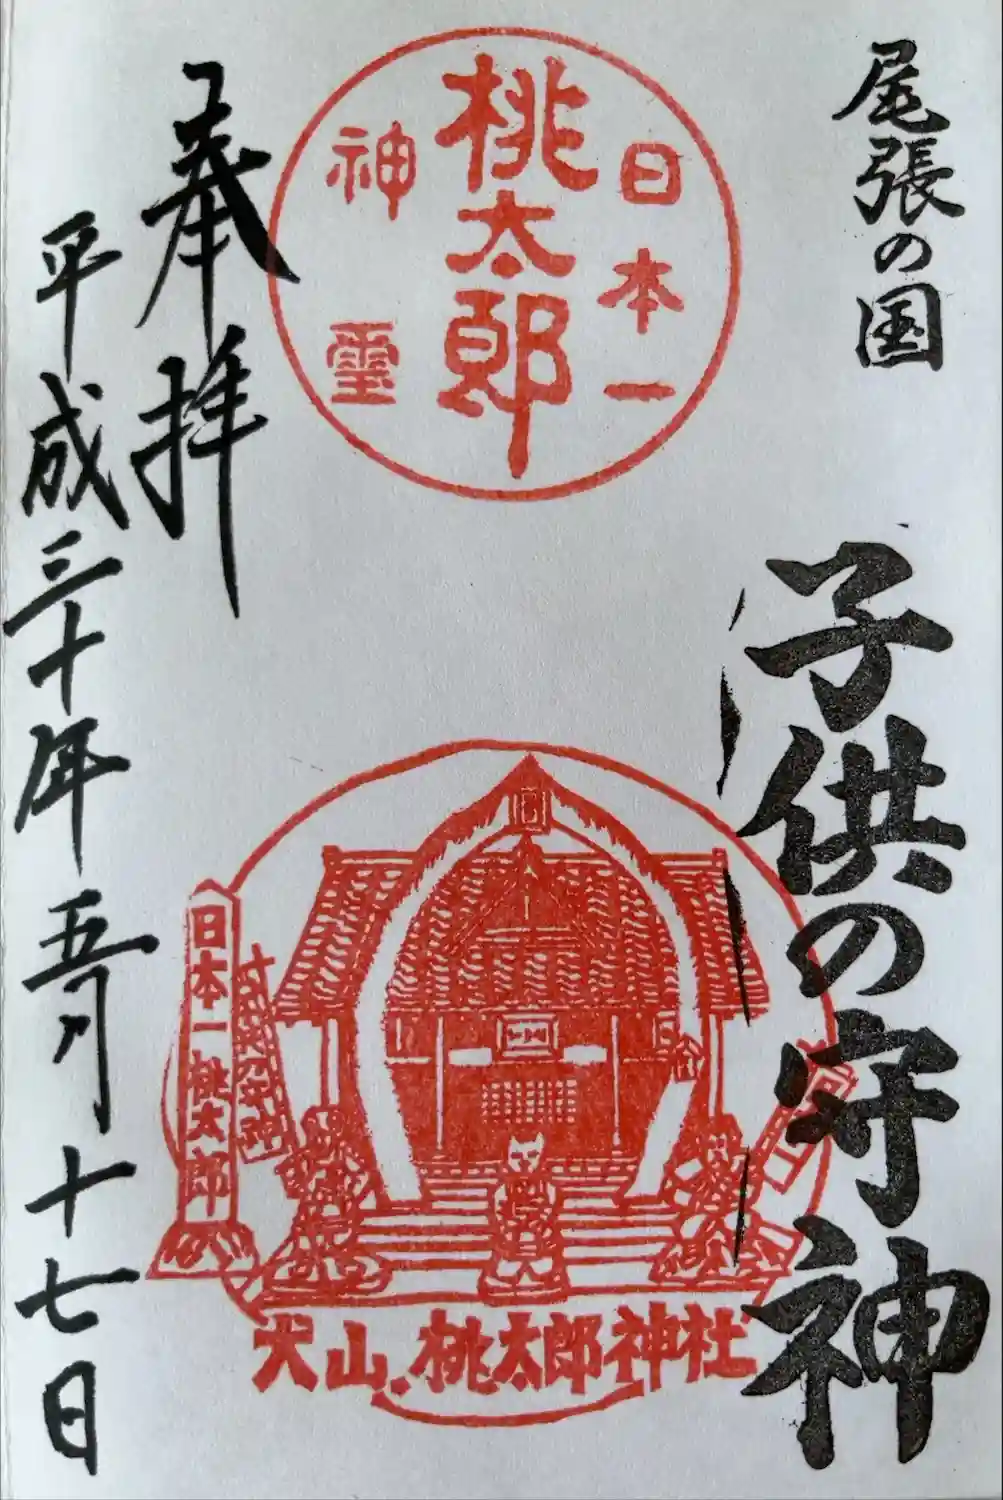 尾張の国
子供の守神
日本一
桃太郎
神霊
奉拝
平成三十年五月十七日
日本一桃太郎
犬山桃太郎神社